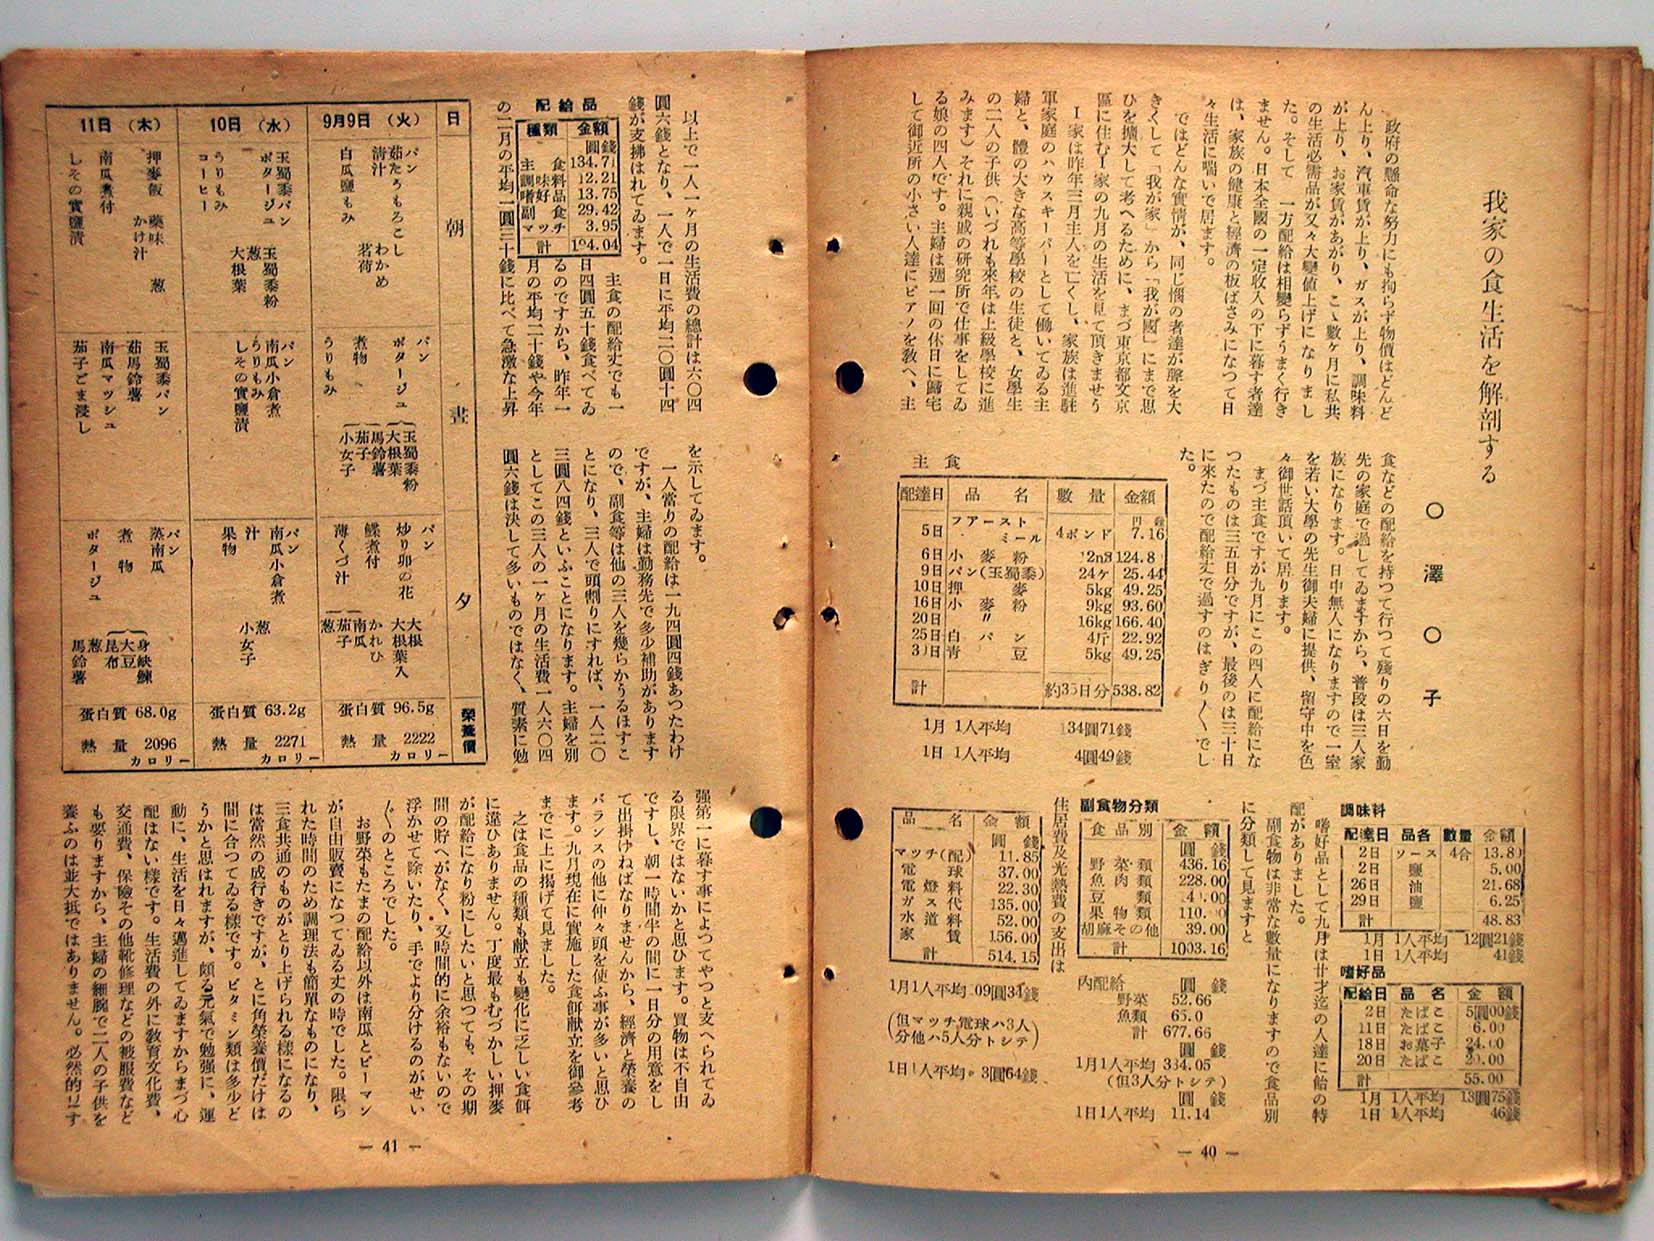 我家の食生活を解剖する
〇澤〇子
政府の懸命な努力にも拘らず物價はどんど
ん上り、汽車賃が上り、ガスが上り、調味料
が上り、お家賃があがり、こゝ數ヶ月に私共
の生活必需品が又々大變値上げになりまし
た。そして一方配給は相變らずうまく行き
ません。日本全國の一定收入の下に暮す者達
は、家族の健康と經濟の板ばさみになつて日
々生活に喘いで居ます。
ではどんな實情が、同じ惱の者達が聲を大
きくして「我が家」から「我が國」にまで思
ひを擴大して考へるために、まづ東京都文京
區に住むI家の九月の生活を見て頂きませう
I家は昨年三月主人を亡くし、家族は進駐
軍家庭のハウスキーパーとして働いてゐる主
婦と、體の大きな高等學校の生徒と、女學生
の二人の子供(いづれも來年は上級學校に進
みます)それに親戚の研究所で仕事をしてゐ
る娘の四人です。主婦は週一回の休日に歸宅
して御近所の小さい人達にピアノを教へ、主
食などの配給を持つて行つて殘りの六日を勤
先の家庭で過してゐますから、普段は三人家
族になります。日中無人になりますので一室
を若い大學の先生御夫婦に提供、留守中を色
々御世話頂いて居ります。
まづ主食ですが九月にこの四人に配給にな
つたものは三五日分ですが、最後のは三十日
に來たので配給丈で過すのはぎり〳〵でし
た。
主食
配達日 品名 數量 金額
円 錢
5日 フアーストミール 4ポンド 7.16
6日 小麥粉 124.8
9日 パン(玉蜀黍) 24ケ 25.44
10日 押麥 5kg 49.25
16日 小麥粉 9kg 93.60
20日 〃 16kg 166.40
25日 白パン 4斤 22.92
30日 青豆 5kg 49.25
計 約35日分 538.82
1月 1人平均 134圓71錢
1日 1人平均 4圓49錢
調味料
配達日 品名 數量 金額
2日 ソース 4合 13.80
2日 鹽 5.00
26日 油 21.68
29日 鹽 6.25
計 48.83
1月 1人平均 12圓21錢
1日 1人平均 41錢
嗜好品
配給日 品名 金額
2日 たばこ 5圓00錢
11日 たばこ 6.00
18日 お菓子 24.00
20日 たばこ 20.00
計 55.00
1月 1人平均 13圓75錢
1日 1人平均 46錢
嗜好品として九月は廿才迄の人達に飴の特
配がありました。
副食物は非常な數量になりますので食品別
に分類して見ますと
副食物分類
食品別 金額
圓 錢
野菜類 436.16
魚肉類 228.00
豆類
果物 110.
胡麻その他 39.00
計 1003.16
内配給 圓 錢
野菜 52.66
魚類 65.0
計 677.66
圓 錢
1月1人平均 334.05
(但3人分トシテ)
圓 錢
1日1人平均 11.14
住居費及光熱費の支出は
品名 金額
圓 錢
マッチ(配) 11.85
電球 37.00
電燈料 22.30
ガス代 135.00
水道料 52.00
家賃 156.00
計 514.15
1月1人平均 109圓34錢
(但マッチ電球ハ3人
分他ハ5人分トシテ)
1日1人平均 3圓64錢
— 40 —
以上で一人一ヶ月の生活費の總計は六〇四
圓六錢となり、一人で一日に平均二〇圓十四
錢が支拂はれてゐます。
配給品
種類 金額
圓 錢
主食 134.71
調味料 12.21
嗜好品 13.75
副食 29.42
マッチ 3.95
計 194.04
主食の配給丈でも一
日四圓五十錢食べてゐ
るのですから、昨年一
月の平均二十錢や今年
の二月の平均一圓三十錢に比べて急激な上昇
を示してゐます。
一人當りの配給は一九四圓四錢あつたわけ
ですが、主婦は勤務先で多少補助があります
ので、副食等は他の三人を幾らかうるほすこ
とになり、三人で頭割りにすれば、一人二〇
三圓八四錢といふことになります。主婦を別
としてこの三人の一ヶ月の生活費一人六〇四
圓六錢は決して多いものではなく、質素に勉
强第一に暮す事によつてやつと支へられてゐ
る限界ではないかと思ひます。買物は不自由
ですし、朝一時間半の間に一日分の用意をし
て出掛けねばなりませんから、經濟と榮養の
バランスの他に仲々頭を使ふ事が多いと思ひ
ます。九月現在に實施した食餌献立を御參考
までに上に揭げて見ました。
之は食品の種類も献立も變化に乏しい食餌
に違ひありません。丁度最もむづかしい押麥
が配給になり粉にしたいと思つても、その期
間の貯へがなく、又時間的に余裕もないので
浮かせて除いたり、手でより分けるのがせい
〴〵のところでした。
お野菜もたまの配給以外は南瓜とピーマン
が自由販賣になつてゐる丈の時でした。限ら
れた時間のため調理法も簡單なものになり、
三食共通のものがとり上げられる樣になるの
は當然の成行きですが、とに角榮養價だけは
間に合つてゐる樣です。ビタミン類は多少ど
うかと思はれますが、頗る元氣で勉强に、運
動に、生活を日々邁進してゐますからまづ心
配はない樣です。生活費の外に教育文化費、
交通費、保險その他靴修理などの被服費など
も要りますから、主婦の細腕で二人の子供を
養ふのは並大抵ではありません。必然的にす
日 朝 晝 夕 榮養價
9月9日(火)
パン
茹たうもろこし
清汁 わかめ 茗荷
白瓜鹽もみ
パン
ポタージュ 玉蜀黍粉 大根葉 馬鈴薯
煮物 茄子 小女子
うりもみ
パン
炒り卯の花 大根 大根葉入
鰈煮付 かれひ
薄くづ汁 南瓜 茄子 葱
蛋白質 96.5g
熱量 2222カロリー
10日(水)
玉蜀黍パン
ポタージュ 玉蜀黍粉 葱 大根葉
うりもみ
コーヒー
パン
南瓜小倉煮
うりもみ
しその實鹽漬
パン
南瓜小倉煮
汁 葱 小女子
果物
蛋白質 63.2g
熱量 2271カロリー
11日(木)
押麥飯 藥味 葱
かけ汁
南瓜煮付
しその實鹽漬
玉蜀黍パン
茹馬鈴薯
南瓜マツシュ
茄子ごま浸し
パン
蒸南瓜
煮物 身缺鰊 大豆 昆布
ポタージュ 葱 馬鈴薯
蛋白質 68.0g
熱量 2096カロリー
— 41 —